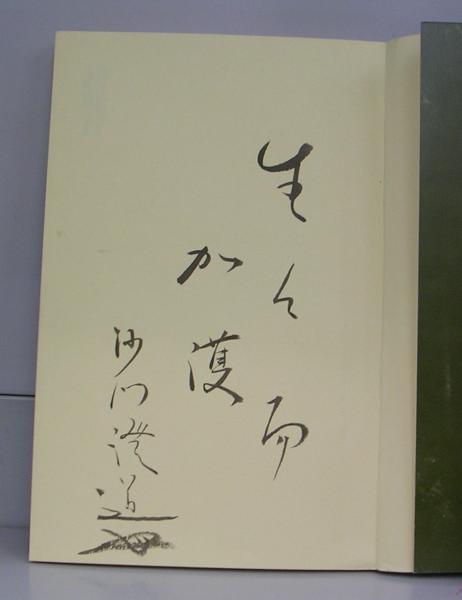 生々而
加護
沙門澄道